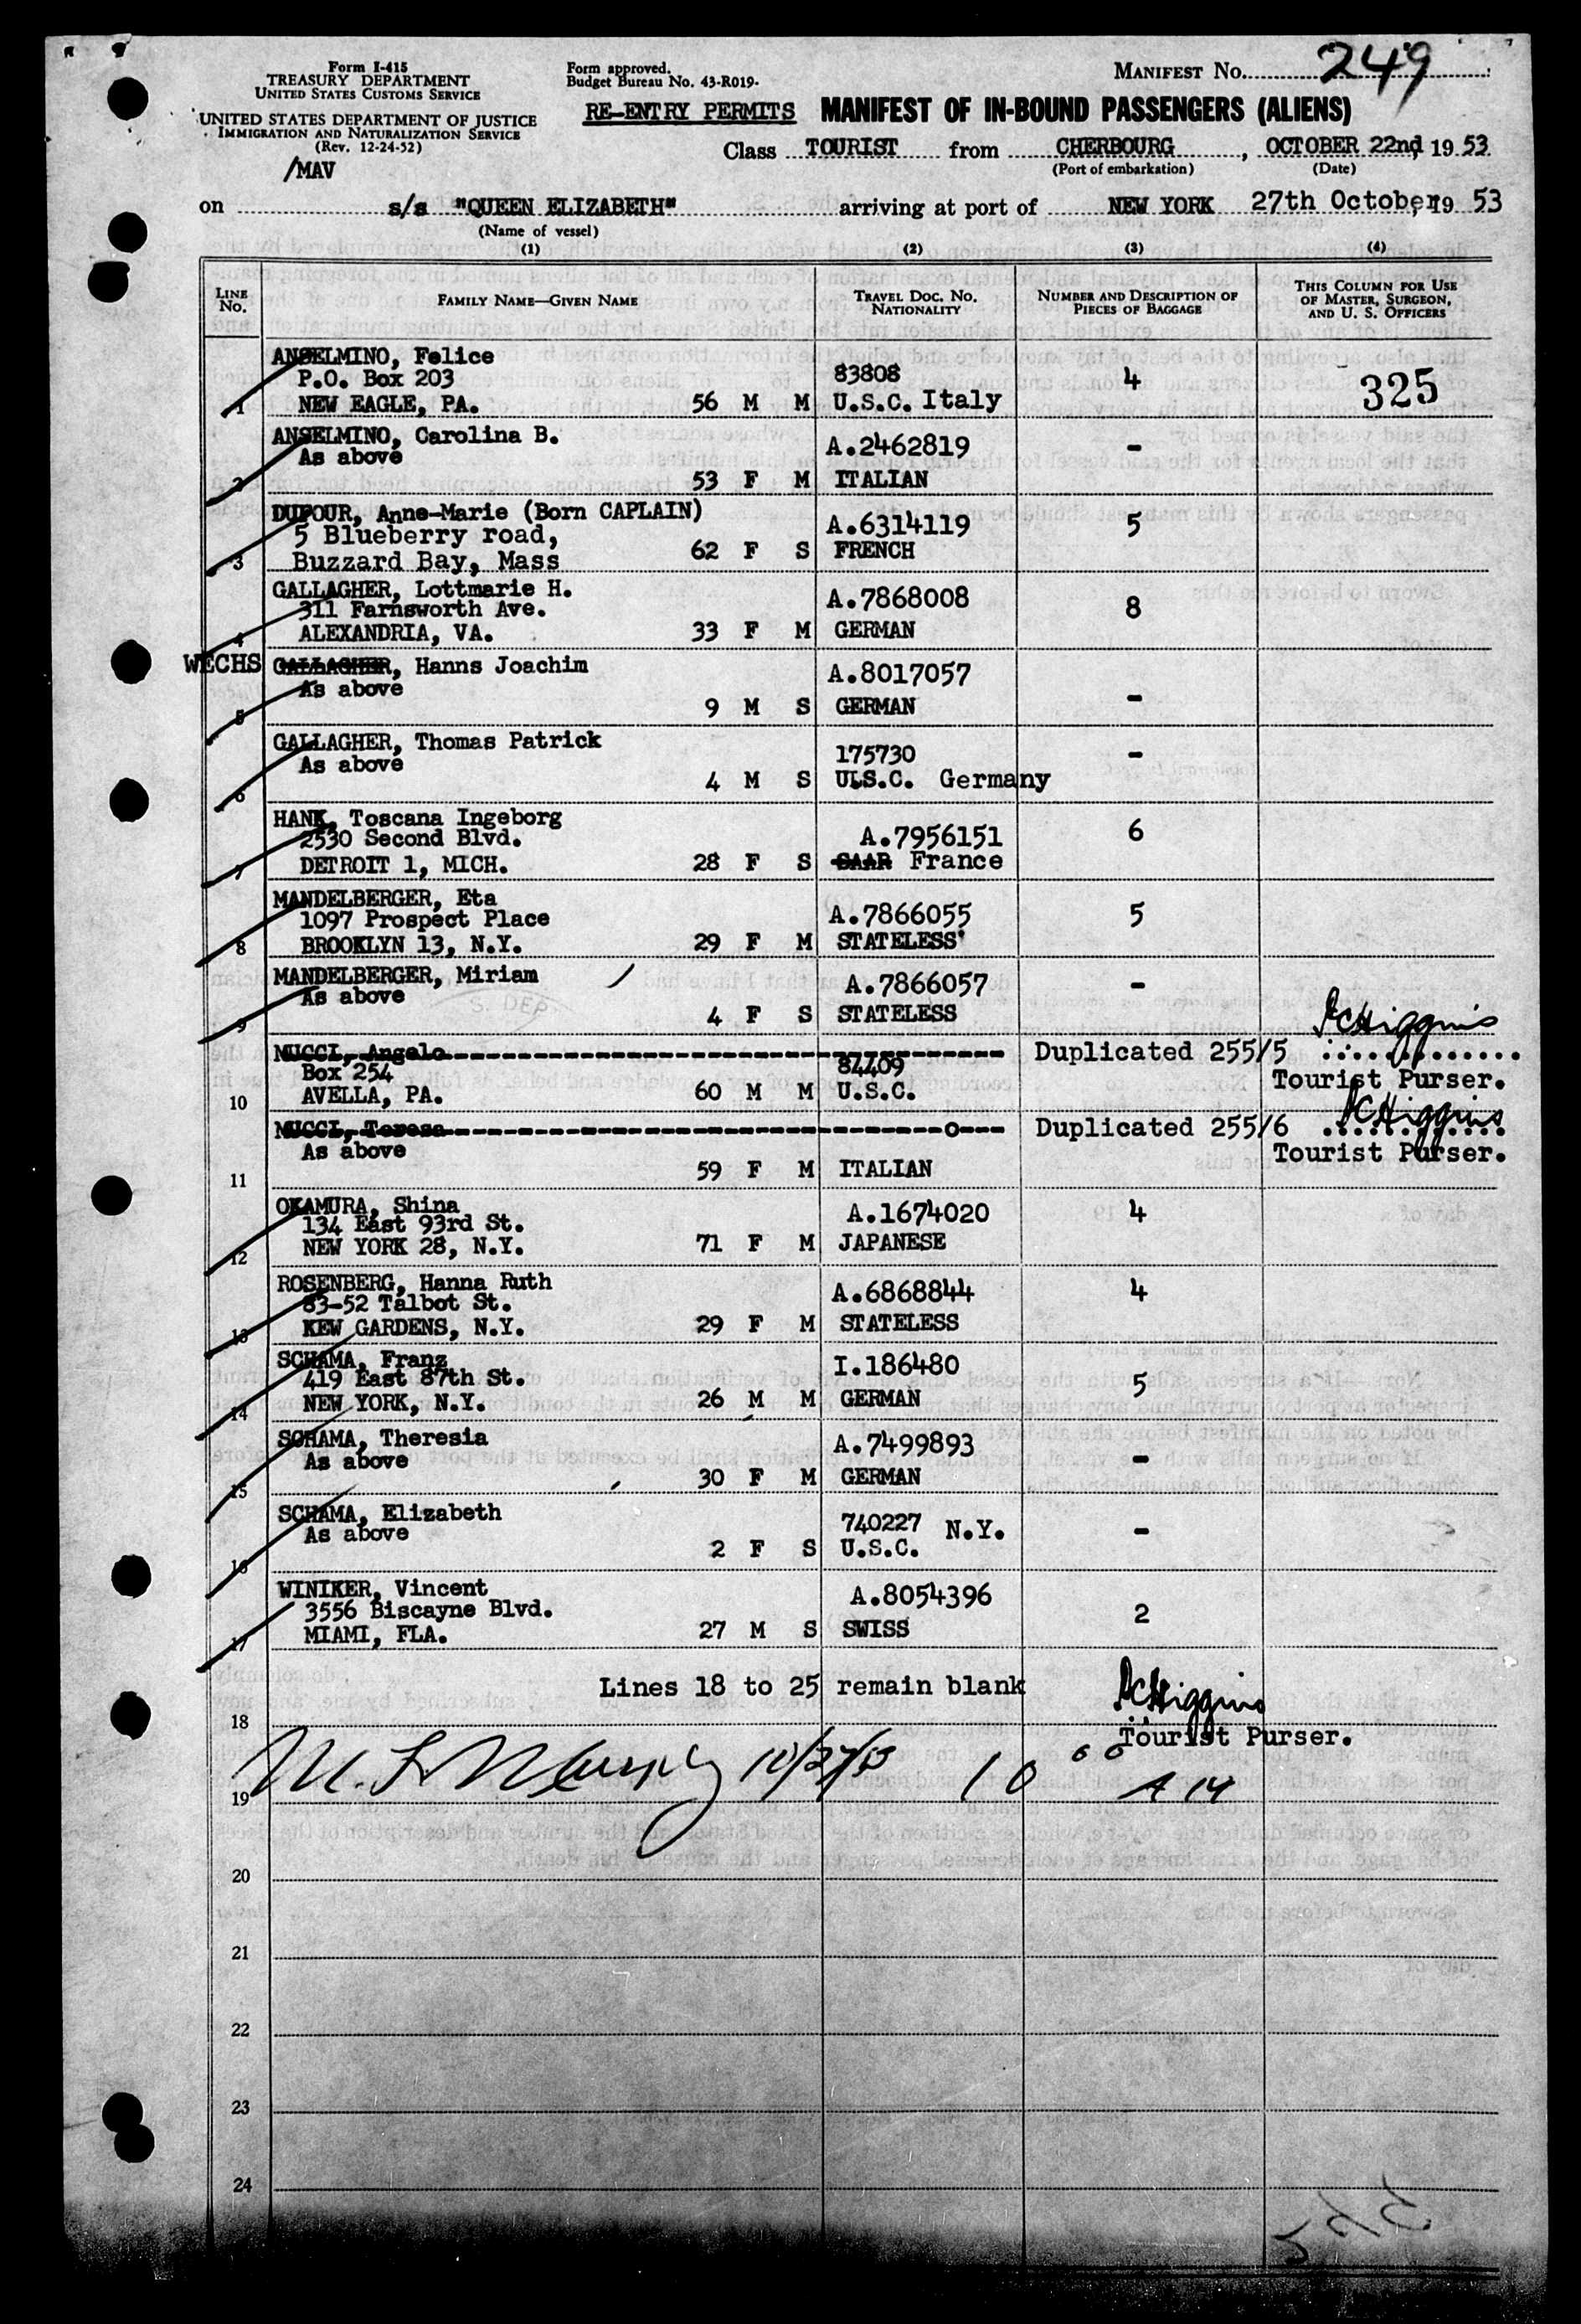 Form I-415
TREASURY DEPARTMENT
UNITED STATES CUSTOMS SERVICE
UNITED STATES DEPARTMENT OF JUSTICE
IMMIGRATION AND NATURALIZATION SERVICE
(Rev. 12-24-52)
/MAV
Form approved.
Budget Bureau No. 43-R019-
MANIFEST No. 249
RE-ENTRY PERMITS MANIFEST OF IN-BOUND PASSENGERS (ALIENS)
Class TOURIST from CHERBOURG, OCTOBER 22nd, 19 53
(Port of embarkation) (Date)
on s/s "QUEEN ELIZABETH" arriving at port of NEW YORK 27th October, 19 53
(Name of vessel)
(1) (2) (3) (4)
LINE No. FAMILY NAME—GIVEN NAME TRAVEL DOC. No. NATIONALITY NUMBER AND DESCRIPTION OF PIECES OF BAGGAGE THIS COLUMN FOR USE OF MASTER, SURGEON, AND U. S. OFFICERS
ANSELMINO, Felice
P.O. Box 203 83808 4 325
1 NEW EAGLE, PA. 56 M M U.S.C. Italy
ANSELMINO, Carolina B.
As above A.2462819 -
2 53 F M ITALIAN
DUFOUR, Anne-Marie (Born CAPLAIN)
5 Blueberry road, A.6314119 5
3 Buzzard Bay, Mass 62 F S FRENCH
GALLAGHER, Lottmarie H.
311 Farnsworth Ave. A.7868008 8
4 ALEXANDRIA, VA. 33 F M GERMAN
WECHS GALLAGHER, Hanns Joachim
As above A.8017057
5 9 M S GERMAN -
GALLAGHER, Thomas Patrick
As above 175730 -
6 4 M S U.S.C. Germany
HANK, Toscana Ingeborg
2530 Second Blvd. A.7956151 6
7 DETROIT 1, MICH. 28 F S SAAR France
MANDELBERGER, Eta
1097 Prospect Place A.7866055 5
8 BROOKLYN 13, N.Y. 29 F M STATELESS
MANDELBERGER, Miriam
As above A.7866057 -
S. DEP.
9 4 F S STATELESS
MUCCI, Angelo Duplicated 255/5 Higgins
Box 254 84409 Tourist Purser.
10 AVELLA, PA. 60 M M U.S.C.
MUCCI, Teresa Duplicated 255/6 Higgins
As above Tourist Purser.
11 59 F M ITALIAN
OKAMURA, Shina
134 East 93rd St. A.1674020 4
12 NEW YORK 28, N.Y. 71 F M JAPANESE
ROSENBERG, Hanna Ruth
83-52 Talbot St. A.6868844 4
13 KEW GARDENS, N.Y. 29 F M STATELESS
SCHAMA, Franz
419 East 87th St. I.186480 5
14 NEW YORK, N.Y. 26 M M GERMAN
SCHAMA, Theresia
As above A.7499893 -
15 30 F M GERMAN
SCHAMA, Elizabeth
As above 740227 N.Y. -
16 2 F S U.S.C.
WINIKER, Vincent
3556 Biscayne Blvd. A.8054396 2
17 MIAMI, FLA. 27 M S SWISS
Lines 18 to 25 remain blank Higgins
18 Tourist Purser.
19 M. L. Murphy 10/27/53 10 00 AM
20
21
22
23
24